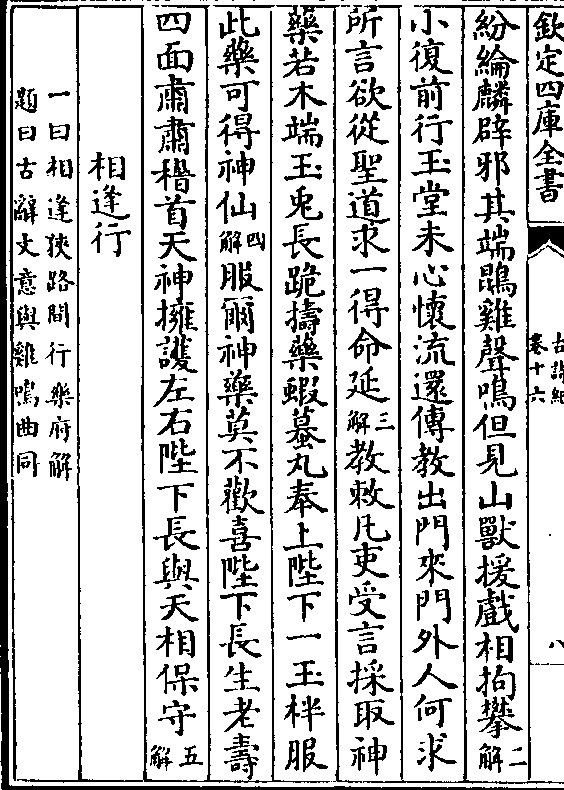 欽定四庫全書
古詩紀
卷十六
八
紛綸麟辟邪其端鵾雞聲鳴但見山獸援戲相拘攀二解
小復前行玉堂未心懷流還傳教出門來門外人何求
所言欲從聖道求一得命延三解教敕凡吏受言採取神
藥若木端玉兎長跪擣藥蝦蟇丸奉上陛下一玉柈服
此藥可得神仙四解服爾神藥莫不歡喜陛下長生老壽
四面肅肅稽首天神擁護左右陛下長與天相保守五解
相逢行
一曰相逢狹路間行樂府解
題曰古辭文意與雞鳴曲同